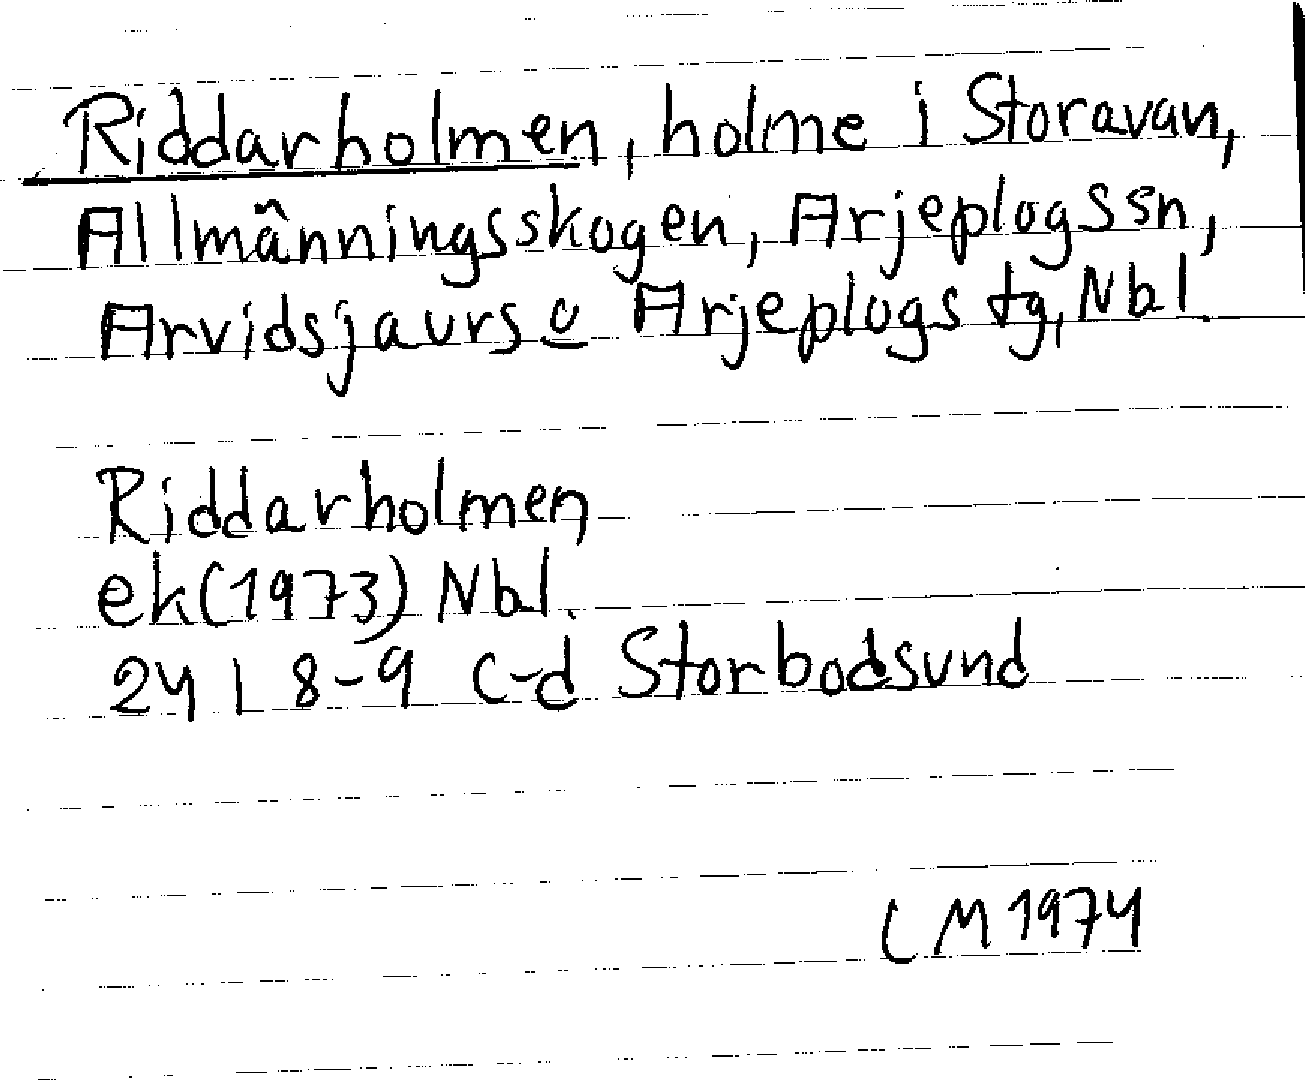 Riddarholmen, holme i Storavan,
Allmänningsskogen, Arjeplogs sn,
Arvidsjaurs o Arjeplogs tg, Nbl.
Riddarholmen
ek (1973) Nbl.
24 I 8-9 c-d Storbodsund
LM 1974